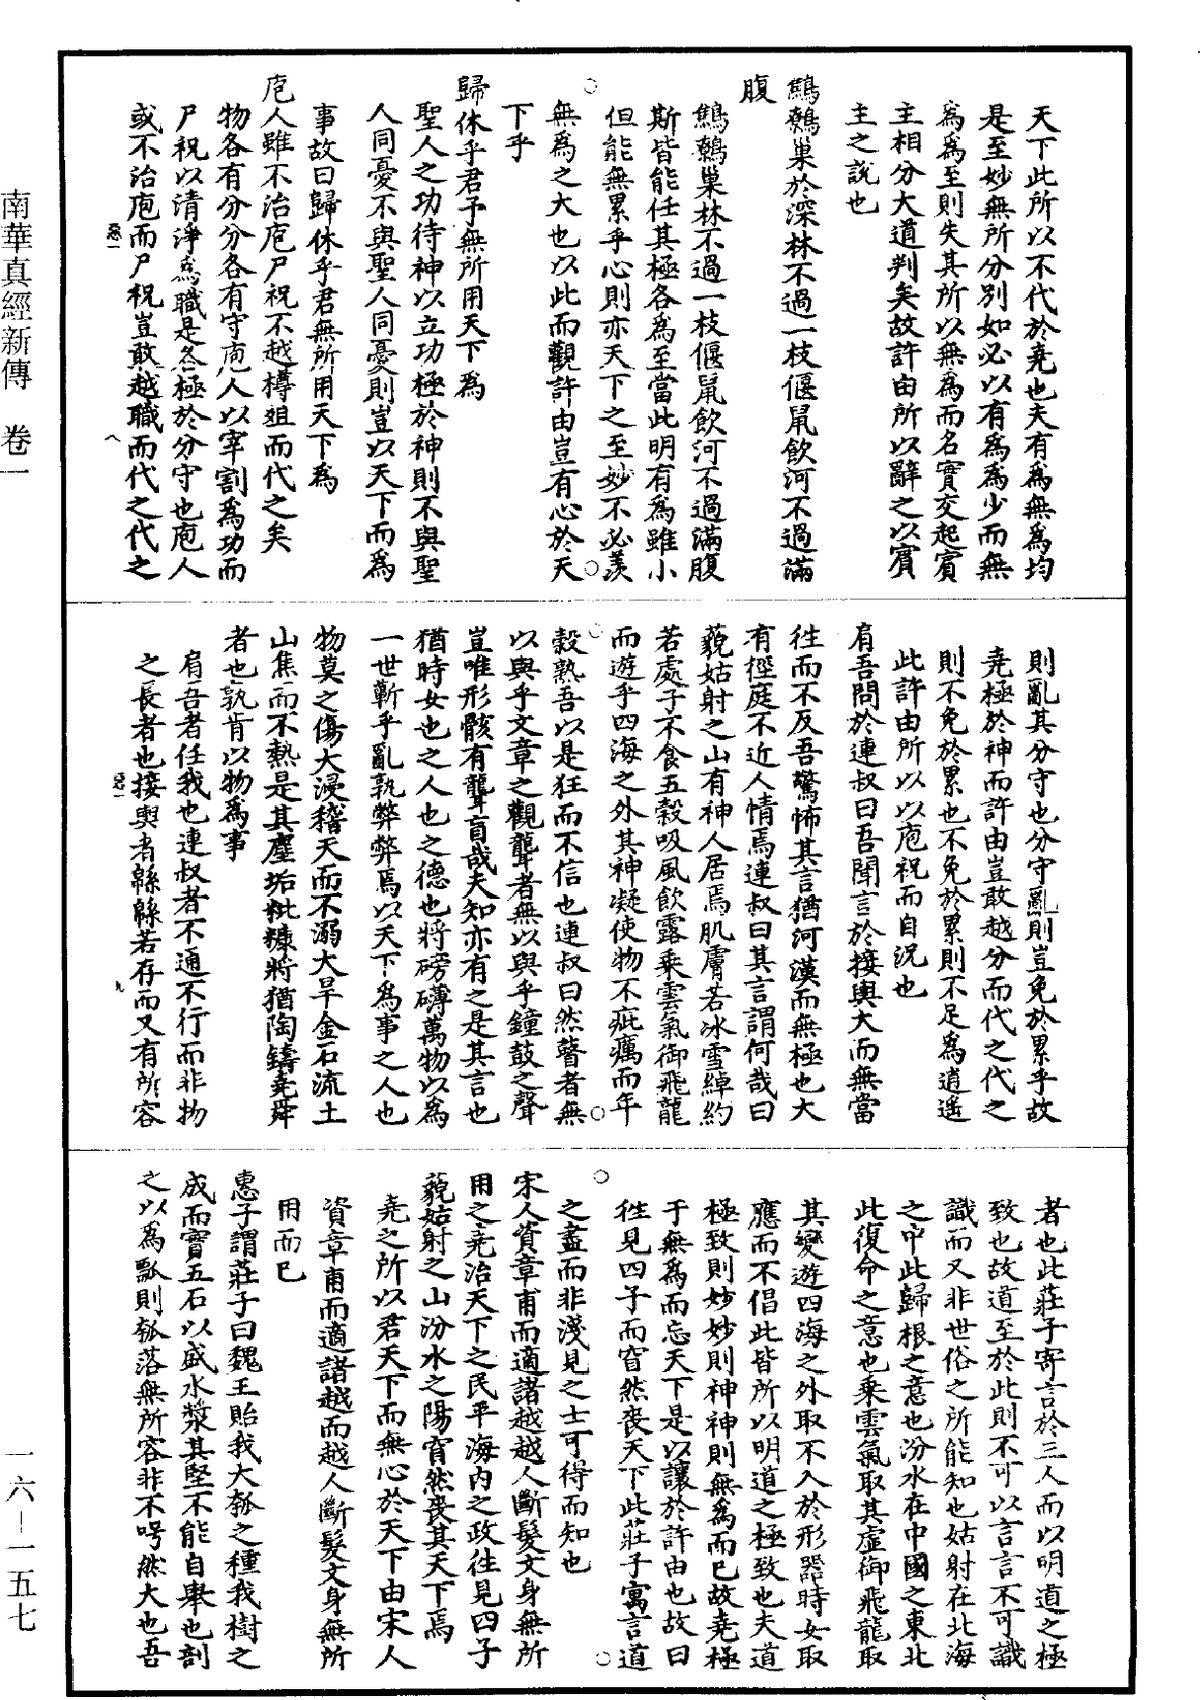 天下此所以不代於堯也夫有爲無爲均
是至妙無所分別如必以有爲爲少而無
爲爲至則失其所以無爲而名實交起賓
主相分大道判矣故許由所以辭之以賓
主之說也
鷦鷯巢於深林不過一枝偃鼠飲河不過滿
腹
鷦鷯巢林不過一枝偃鼠飲河不過滿腹
斯皆能任其極各爲至當此明有爲雖小
但能無累乎心則亦天下之至妙不必羨
無爲之大也以此而觀許由豈有心於天
下乎
歸休乎君予無所用天下爲
聖人之功待神以立功極於神則不與聖
人同憂不與聖人同憂則豈以天下而爲
事故曰歸休乎君無所用天下爲
庖人雖不治庖尸祝不越樽俎而代之矣
物各有分分各有守庖人以宰割爲功而
尸祝以清淨爲職是各極於分守也庖人
或不治庖而尸祝豈敢越職而代之代之
則亂其分守也分守亂則豈免於累乎故
堯極於神而許由豈敢越分而代之代之
則不免於累也不免於累則不足爲逍遙
此許由所以以庖祝而自況也
肩吾問於連叔曰吾聞言於接輿大而無當
往而不反吾驚怖其言猶河漢而無極也大
有徑庭不近人情焉連叔曰其言謂何哉曰
藐姑射之山有神人居焉肌膚若冰雪綽約
若處子不食五穀吸風飲露乘雲氣御飛龍
而遊乎四海之外其神凝使物不疵癘而年
穀熟吾以是狂而不信也連叔曰然瞽者無
以與乎文章之觀聾者無以與乎鐘鼓之聲
豈唯形骸有聾盲哉夫知亦有之是其言也
猶時女也之人也之德也將磅礡萬物以爲
一世蘄乎亂孰弊弊焉以天下爲事之人也
物莫之傷大浸稽天而不溺大旱金石流土
山焦而不熱是其塵垢粃糠將猶陶鑄堯舜
者也孰肯以物爲事
肩吾者任我也連叔者不通不行而非物
之長者也接輿者緜緜若存而又有所容
者也此莊子寄言於三人而以明道之極
致也故道至於此則不可以言言不可識
識而又非世俗之所能知也姑射在北海
之中此歸根之意也汾水在中國之東北
此復命之意也乘雲氣取其虛御飛龍取
其變遊四海之外取不入於形器時女取
應而不倡此皆所以明道之極致也夫道
極致則妙妙則神神則無爲而已故堯極
于無爲而忘天下是以讓於許由也故曰
往見四子而窅然喪天下此莊子寓言道
之盡而非淺見之士可得而知也
宋人資章甫而適諸越越人斷髮文身無所
用之堯治天下之民平海內之政往見四子
藐姑射之山汾水之陽窅然喪其天下焉
堯之所以君天下而無心於天下由宋人
資章甫而適諸越而越人斷髮文身無所
用而已
惠子謂莊子曰魏王貽我大瓠之種我樹之
成而實五石以盛水漿其堅不能自舉也剖
之以爲瓢則瓠落無所容非不呺然大也吾
南華真經新傳　卷一
一六－一五七